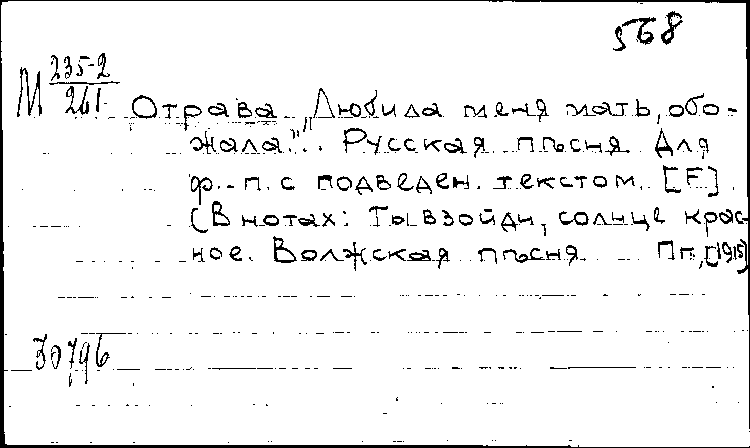 568
М 235-2/261
Отрава „Любила меня мать, обо-
жала"... Русская пѣсня. Для
ф.-п. с подведен. текстом. [F].
(В нотах: Ты взойди, солнце крас-
ное. Волжская пѣсня Пп, [1915]
30796